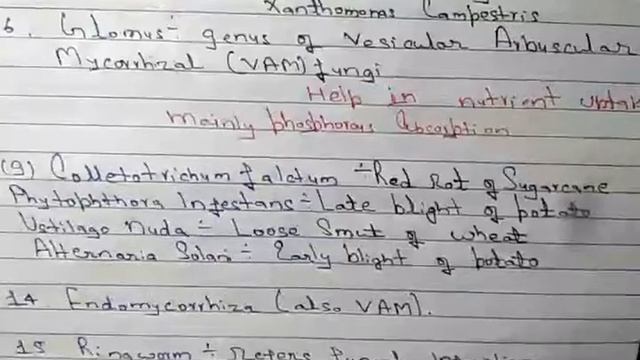 Xanthomonas Campestris
6. Glomus ÷ genus of Vesicular Arbuscular
Mycorrhizal (VAM) fungi
Help in nutrient uptak
mainly phosphorous absorption
(9) Colletotrichum falctum ÷ Red Rot of Sugarcane
Phytophthora Infestans ÷ Late blight of potato
Ustilago nuda ÷ Loose Smut of wheat
Alternaria Solani ÷ Early blight of potato
14 Endomycorrhiza (also VAM).
15 Ringworm ÷ Refers